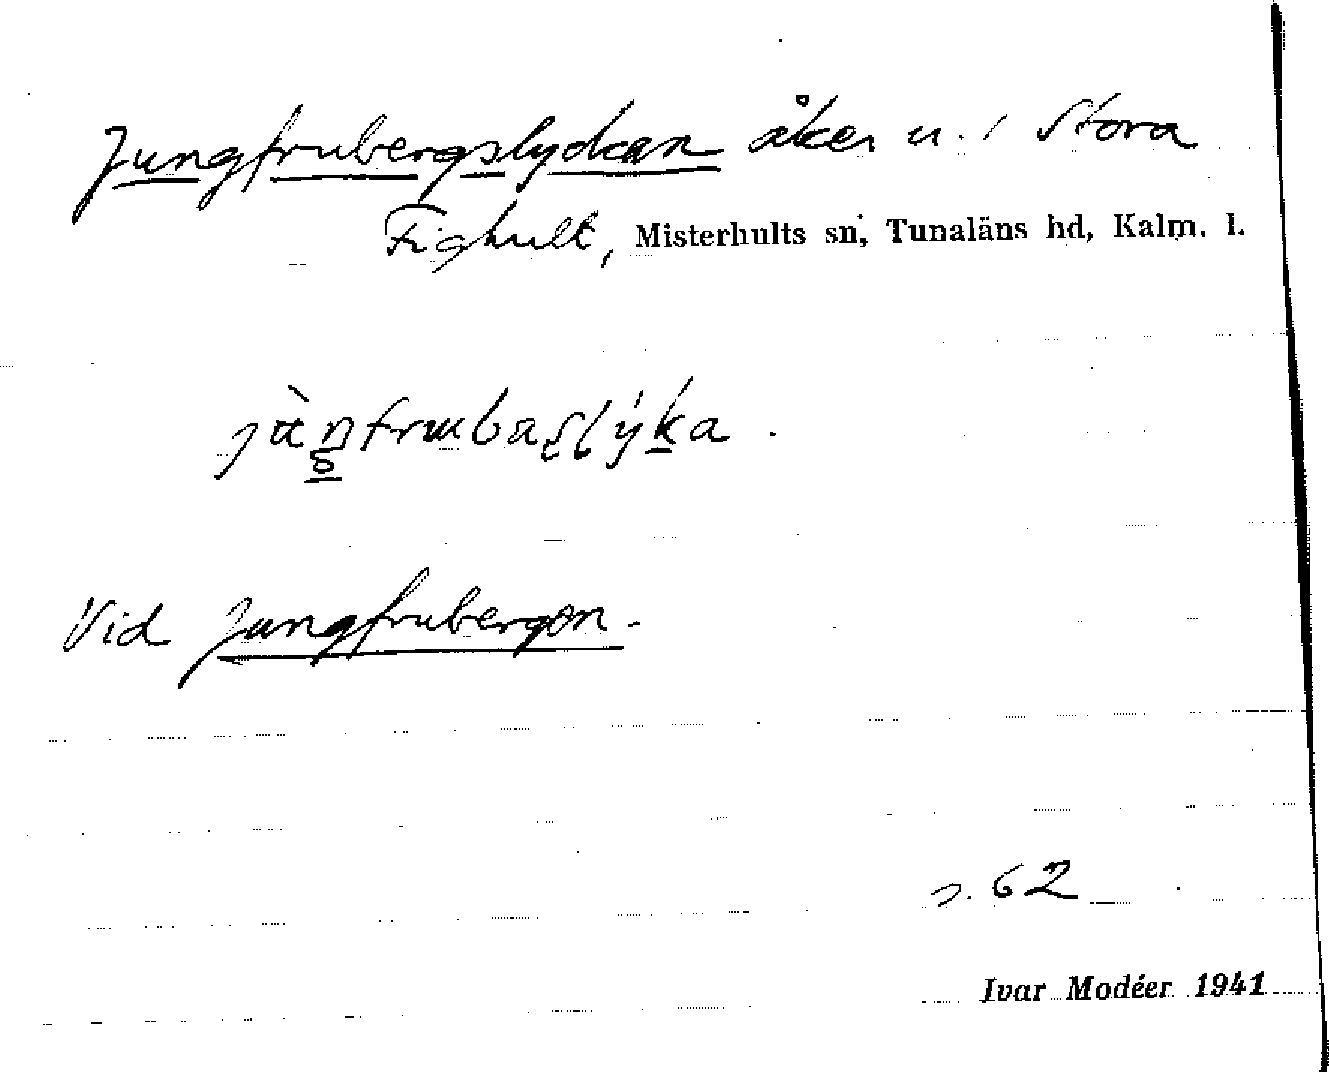 Jungfrubergslyckan åker u. i Stora
Fighult, Misterhults sn, Tunaläns hd, Kalm. l.
Vid Jungfrubergen.
s. 62
Ivar Modéer 1941